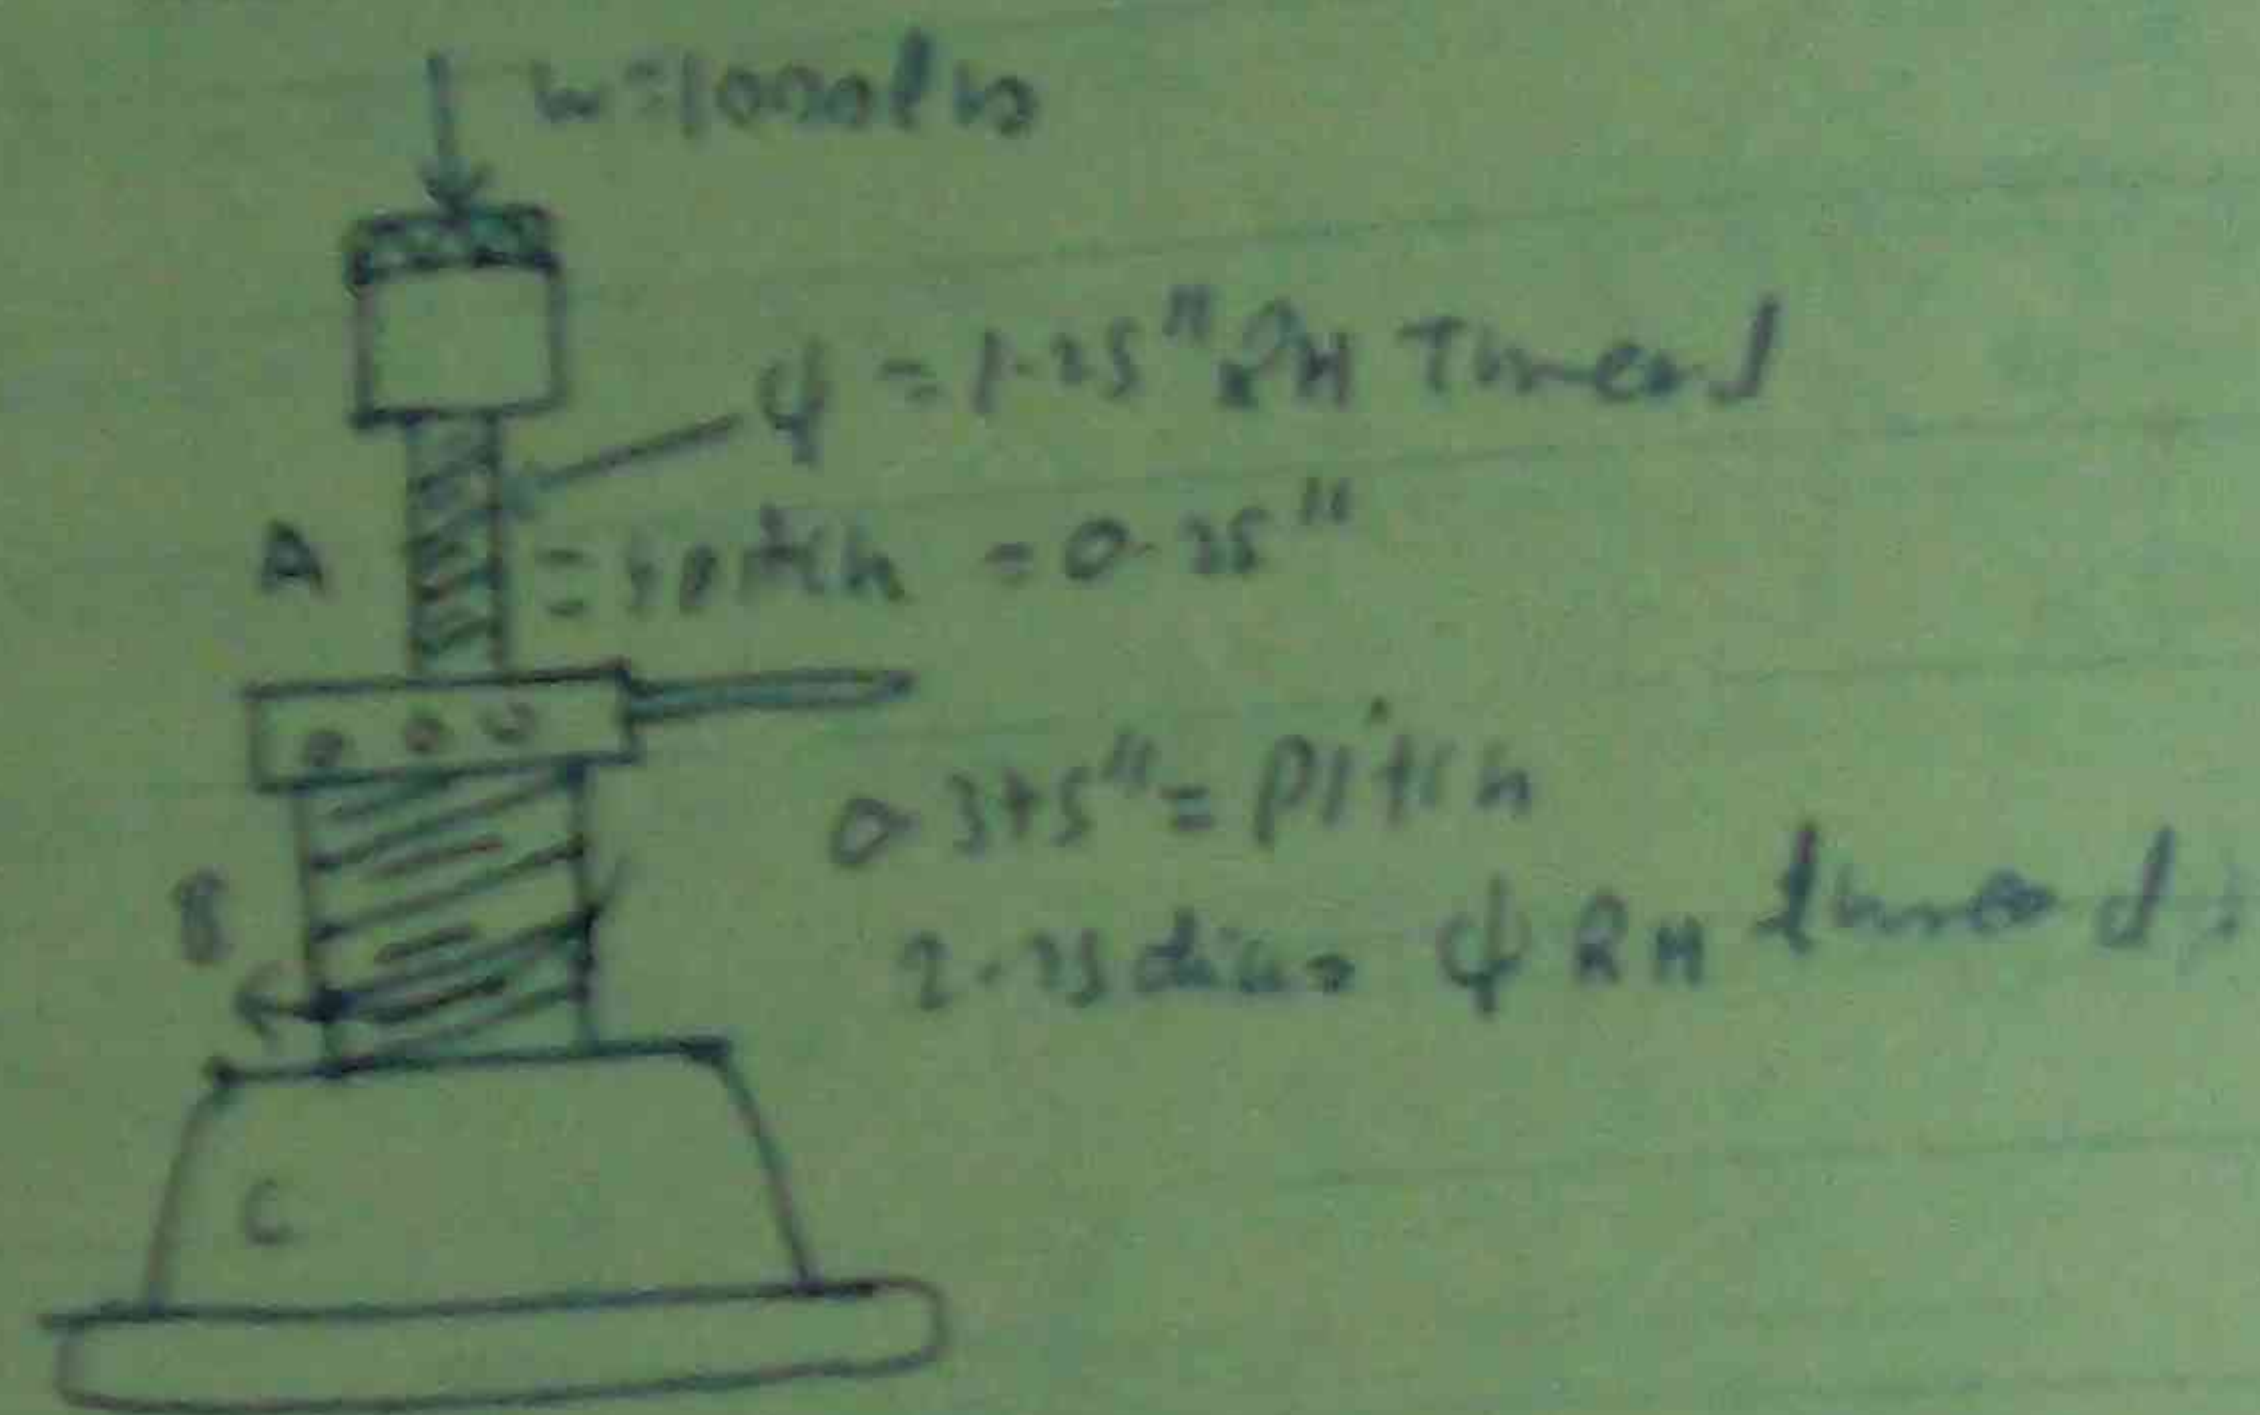 W=1000lb
ϕ = 1.25" RH Thread
A
= pitch = 0.25"
0.375" = pitch
B
2.25 dia = ϕ RH thread
C